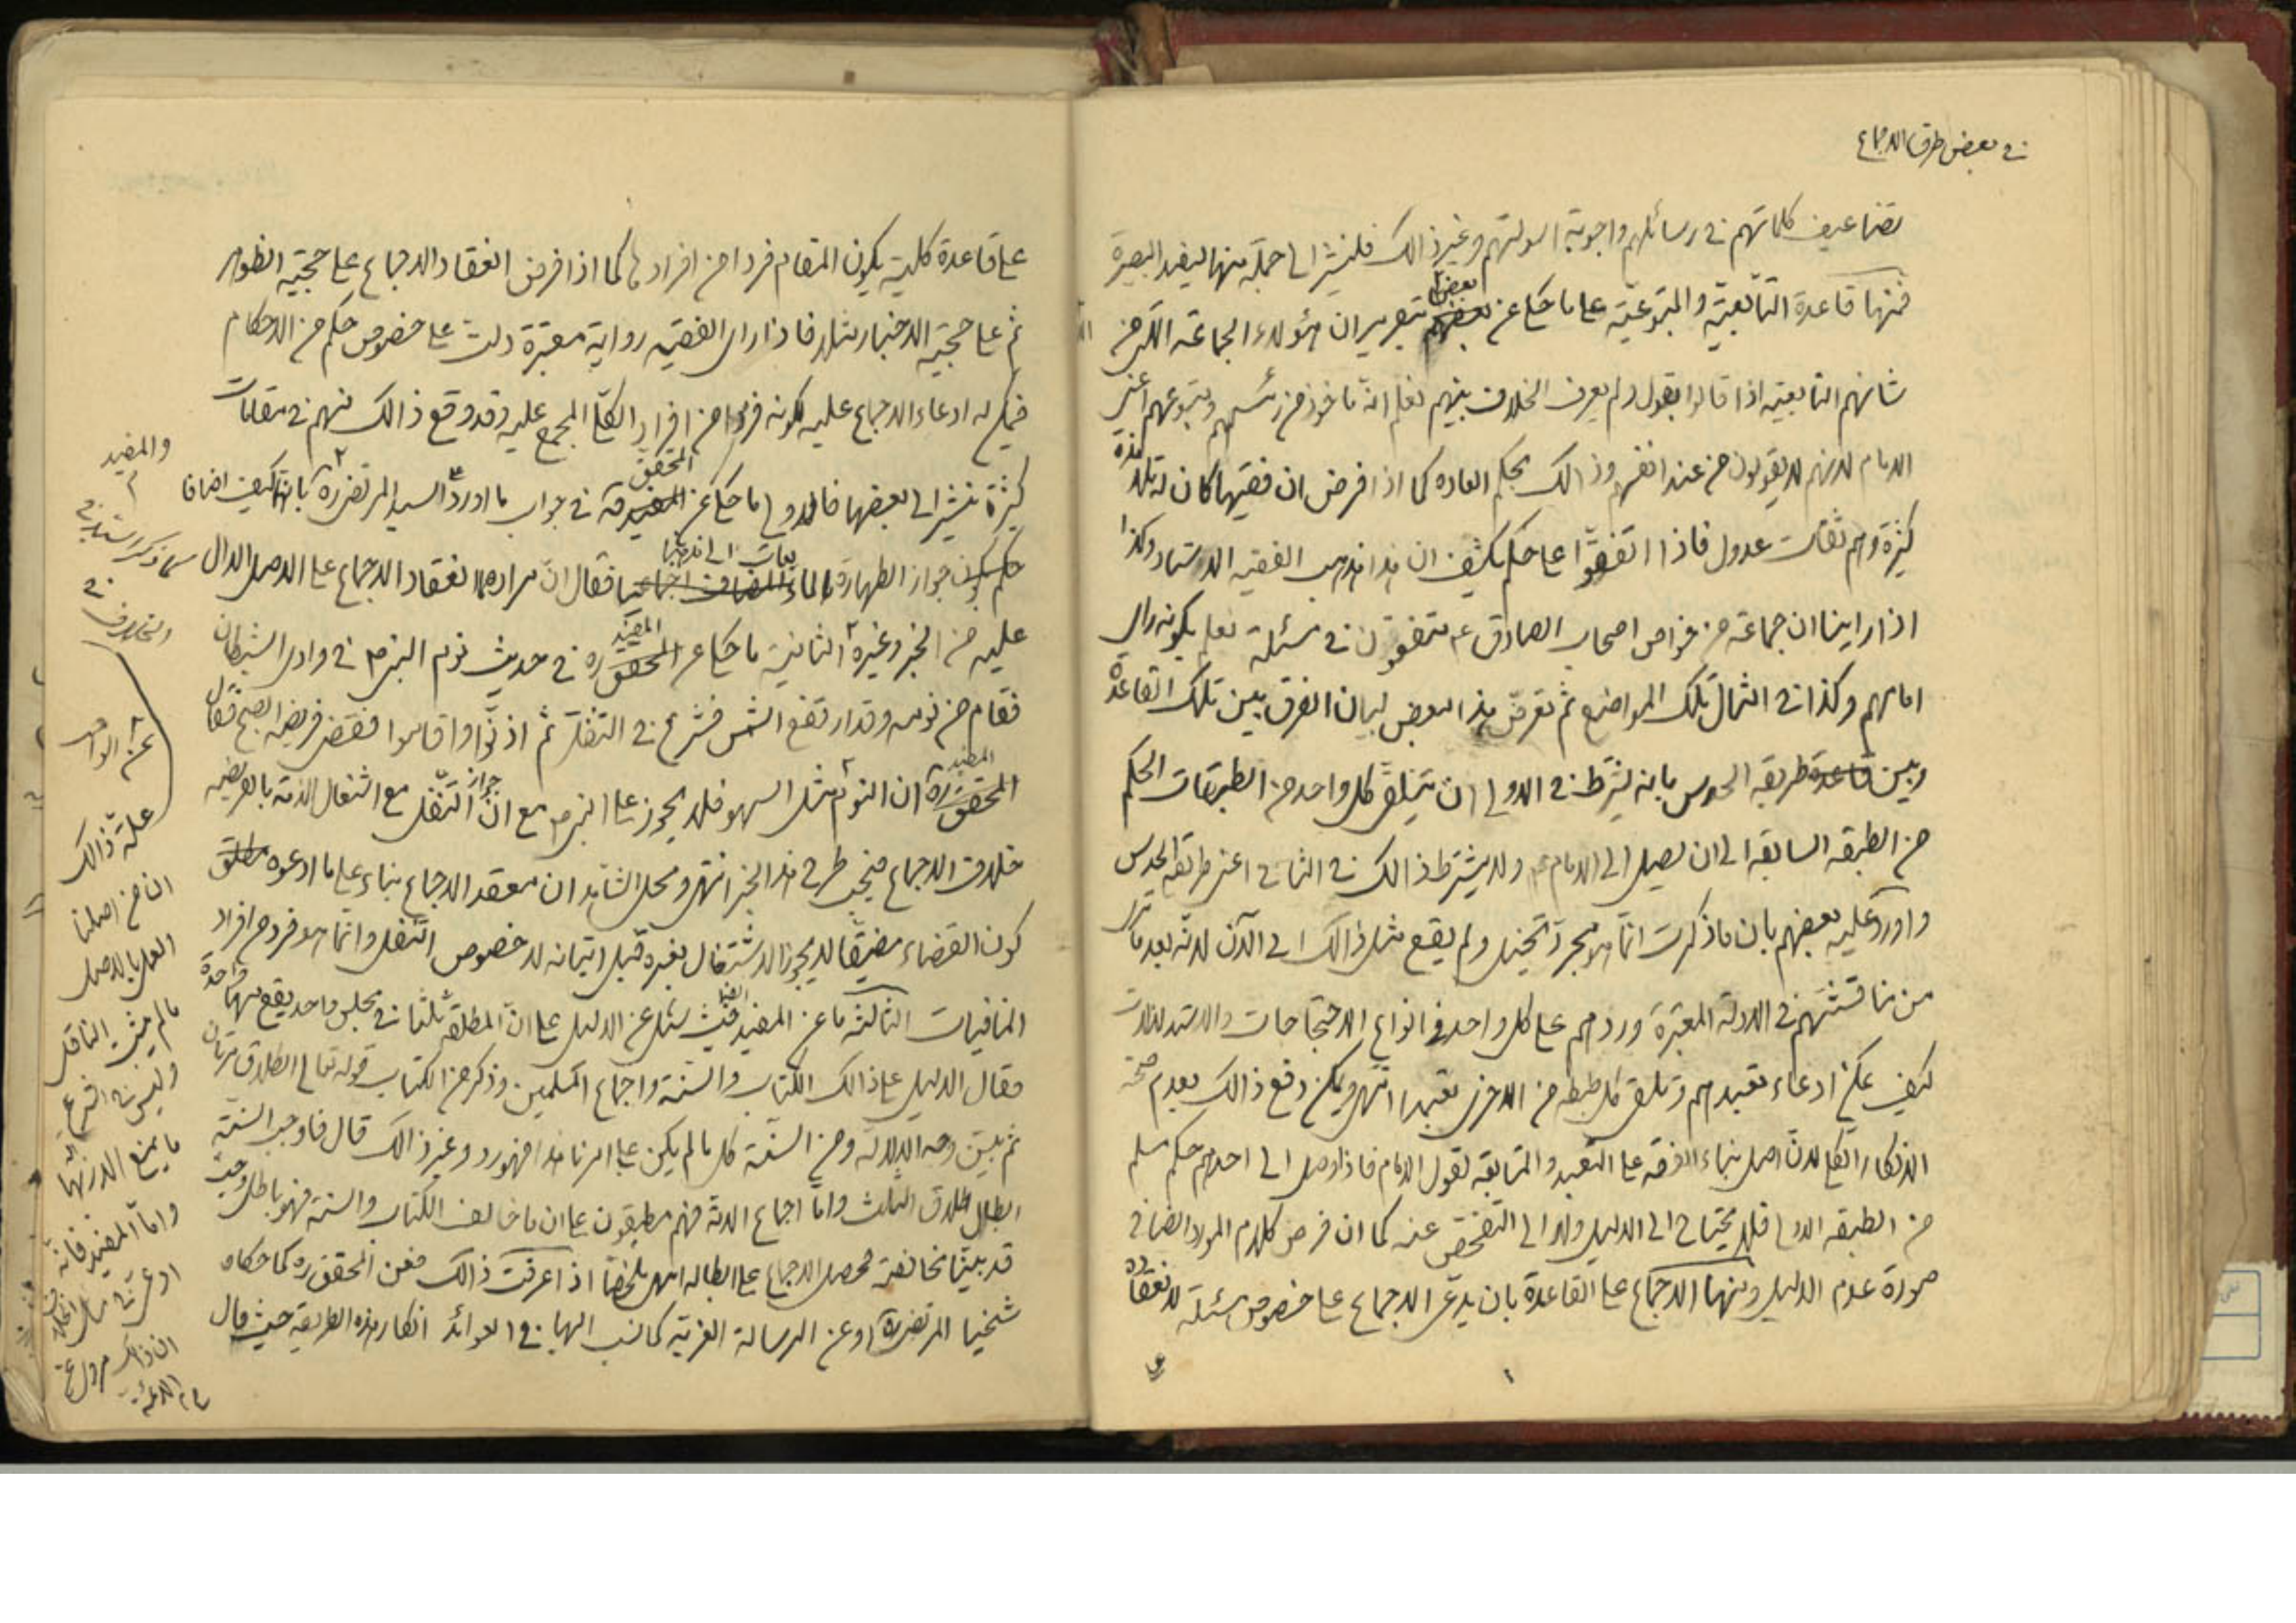 في بعض طرق الاجماع
تضاعيف كلماتهم في رسائلهم واجوبة اسولتهم وغير ذالك فلنشر الى جملة منها ليفيد البصيرة
فمنها قاعدة التابعيّة والمتبوعيّة على ما حكي عن بعض بتقرير ان هؤلاء الجماعة الذين من
شانهم التابعيّة اذا قالوا بقول ولم يعرف الخلاف بينهم نعلم انّه ماخوذ من رئيسهم ومتبوعهم اعني
الامام لانهم لا يقولون من عند انفسهم وذالك بحكم العاده كما اذا فرض ان فقيها كان له تلامذة
كثيرة وهم ثقات عدول فاذا اتفقوا على حكم يكشف ان هذا مذهب الفقيه الاستاد وكذا
اذا راينا ان جماعة من خواص اصحاب الصادق ع متفقون في مسئلة نعلم بكونه راى
امامهم وكذا في امثال تلك المواضع ثم تعرّض هذا البعض لبيان الفرق بين تلك القاعدة
وبين طريقه الحدس بانه يشترط في الاولى ان يتلقى كل واحد من الطبقات الحكم
من الطبقه السابقه الى ان يصل الى الامام ع ولا يشترط ذالك في الثاني اعني طريقة الحدس
واورد عليه بعضهم بان ما ذكرت انّما هو مجرد تخيل ولم يقع مثل ذالك الى الآن لانّه بعد ما نرى
من مناقشتهم في الادلة المعتبرة وردهم على كل واحد في انواع الاحتجاجات والاستدلالات
كيف يمكن ادعاء تعبدهم وتلقى كل طبقه من الاخرى تعبدا انتهى ويمكن دفع ذالك بعدم صحّة
الانكار الكلي لانّ اصل بناء الفرقه على التعبد والمتابعة لقول الامام فاذا وصل الى احدهم حكم مسلم
من الطبقه الاولى فلا يحتاج الى الدليل ولا الى التفحّص عنه كما ان فرض كلام المولا ايضا في
صورة عدم الدليل ومنها الاجماع على القاعدة بان يدعى الاجماع على خصوص مسئلة لانعقاده
على قاعدة كلية يكون المقام فردا من افرادها كما اذا فرض انعقاد الاجماع على حجيّة الظواهر
ثم على حجيّة الاخبار مثلا فاذا راى الفقيه رواية معتبرة دلت على خصوص حكم من الاحكام
فيمكن له ادعاء الاجماع عليه لكونه فردا من افراد الكلّى المجمع عليه وقد وقع ذالك منهم في مقامات
كثيرة نشير الى بعضها فالاولى ما حكي عن المحقق ره في جواب ما اورده السيد المرتضى ره بانهما كيف اضافا
جواز الطهارة بالمائعات الى مذهبنا فقال انّ مراده انعقاد الاجماع على الاصل الدال
عليه من الخبر وغيره الثانية ما حكي عن المفيد ره في حديث نوم النبي ص في وادى الشيطان
فقام من نومه وقد ارتفع الشمس فشرع في التنفل ثم اذنوا واقاموا فقضى فريضة الصبح فقال
المفيد ره ان النوم مثل السهو فلا يجوز على النبي ص مع انّ جواز التنفل مع اشتغال الذمة بالفريضه
خلاف الاجماع فيجب طرح هذا الخبر انتهى ومحل الشاهد ان معقد الاجماع بناء على ما ادعوه مطلق
كون القضاء مضيّقا لا يجوز الاشتغال بغيره قبل اتيانه لا خصوص التنفل وانما هو فرد من افراد
المنافيات الثالثه ما عن المفيد ايضا حيث سئل عن الدليل على انّ المطلقة ثلثا في مجلس واحد يقع منها واحدة
فقال الدليل على ذالك الكتاب والسنة واجماع المسلمين وذكر من الكتاب قوله تعالى الطلاق مرتان
ثم بيّن وجه الدلالة ومن السنّة كل ما لم يكن على امرنا هذا فهو رد وغير ذالك قال فاوجب السنّة
ابطال طلاق الثلث وامّا اجماع الامة فهم مطبقون على ان ما خالف الكتاب والسنة فهو باطل وحيث
قد بيّنا مخالفته فحصل الاجماع على ابطاله انتهى ملخصا اذا عرفت ذالك فعن المحقق ره كما حكاه
شيخنا المرتضى ره او عن الرسالة الغرية كما نسب اليها في العوائد انكار هذه الطريقه حيث قال
والمفيد
في
الخلاف
عن الواحد
علّة ذالك
ان من اصلنا
العمل بالاصل
ما لم يثبت الناقل
وليس في الشرع
ما يمنع الازالة بها
وامّا المفيد فانّه
ادعى في مسائل الخلاف
ان ذالك مروى عن
الائمّة